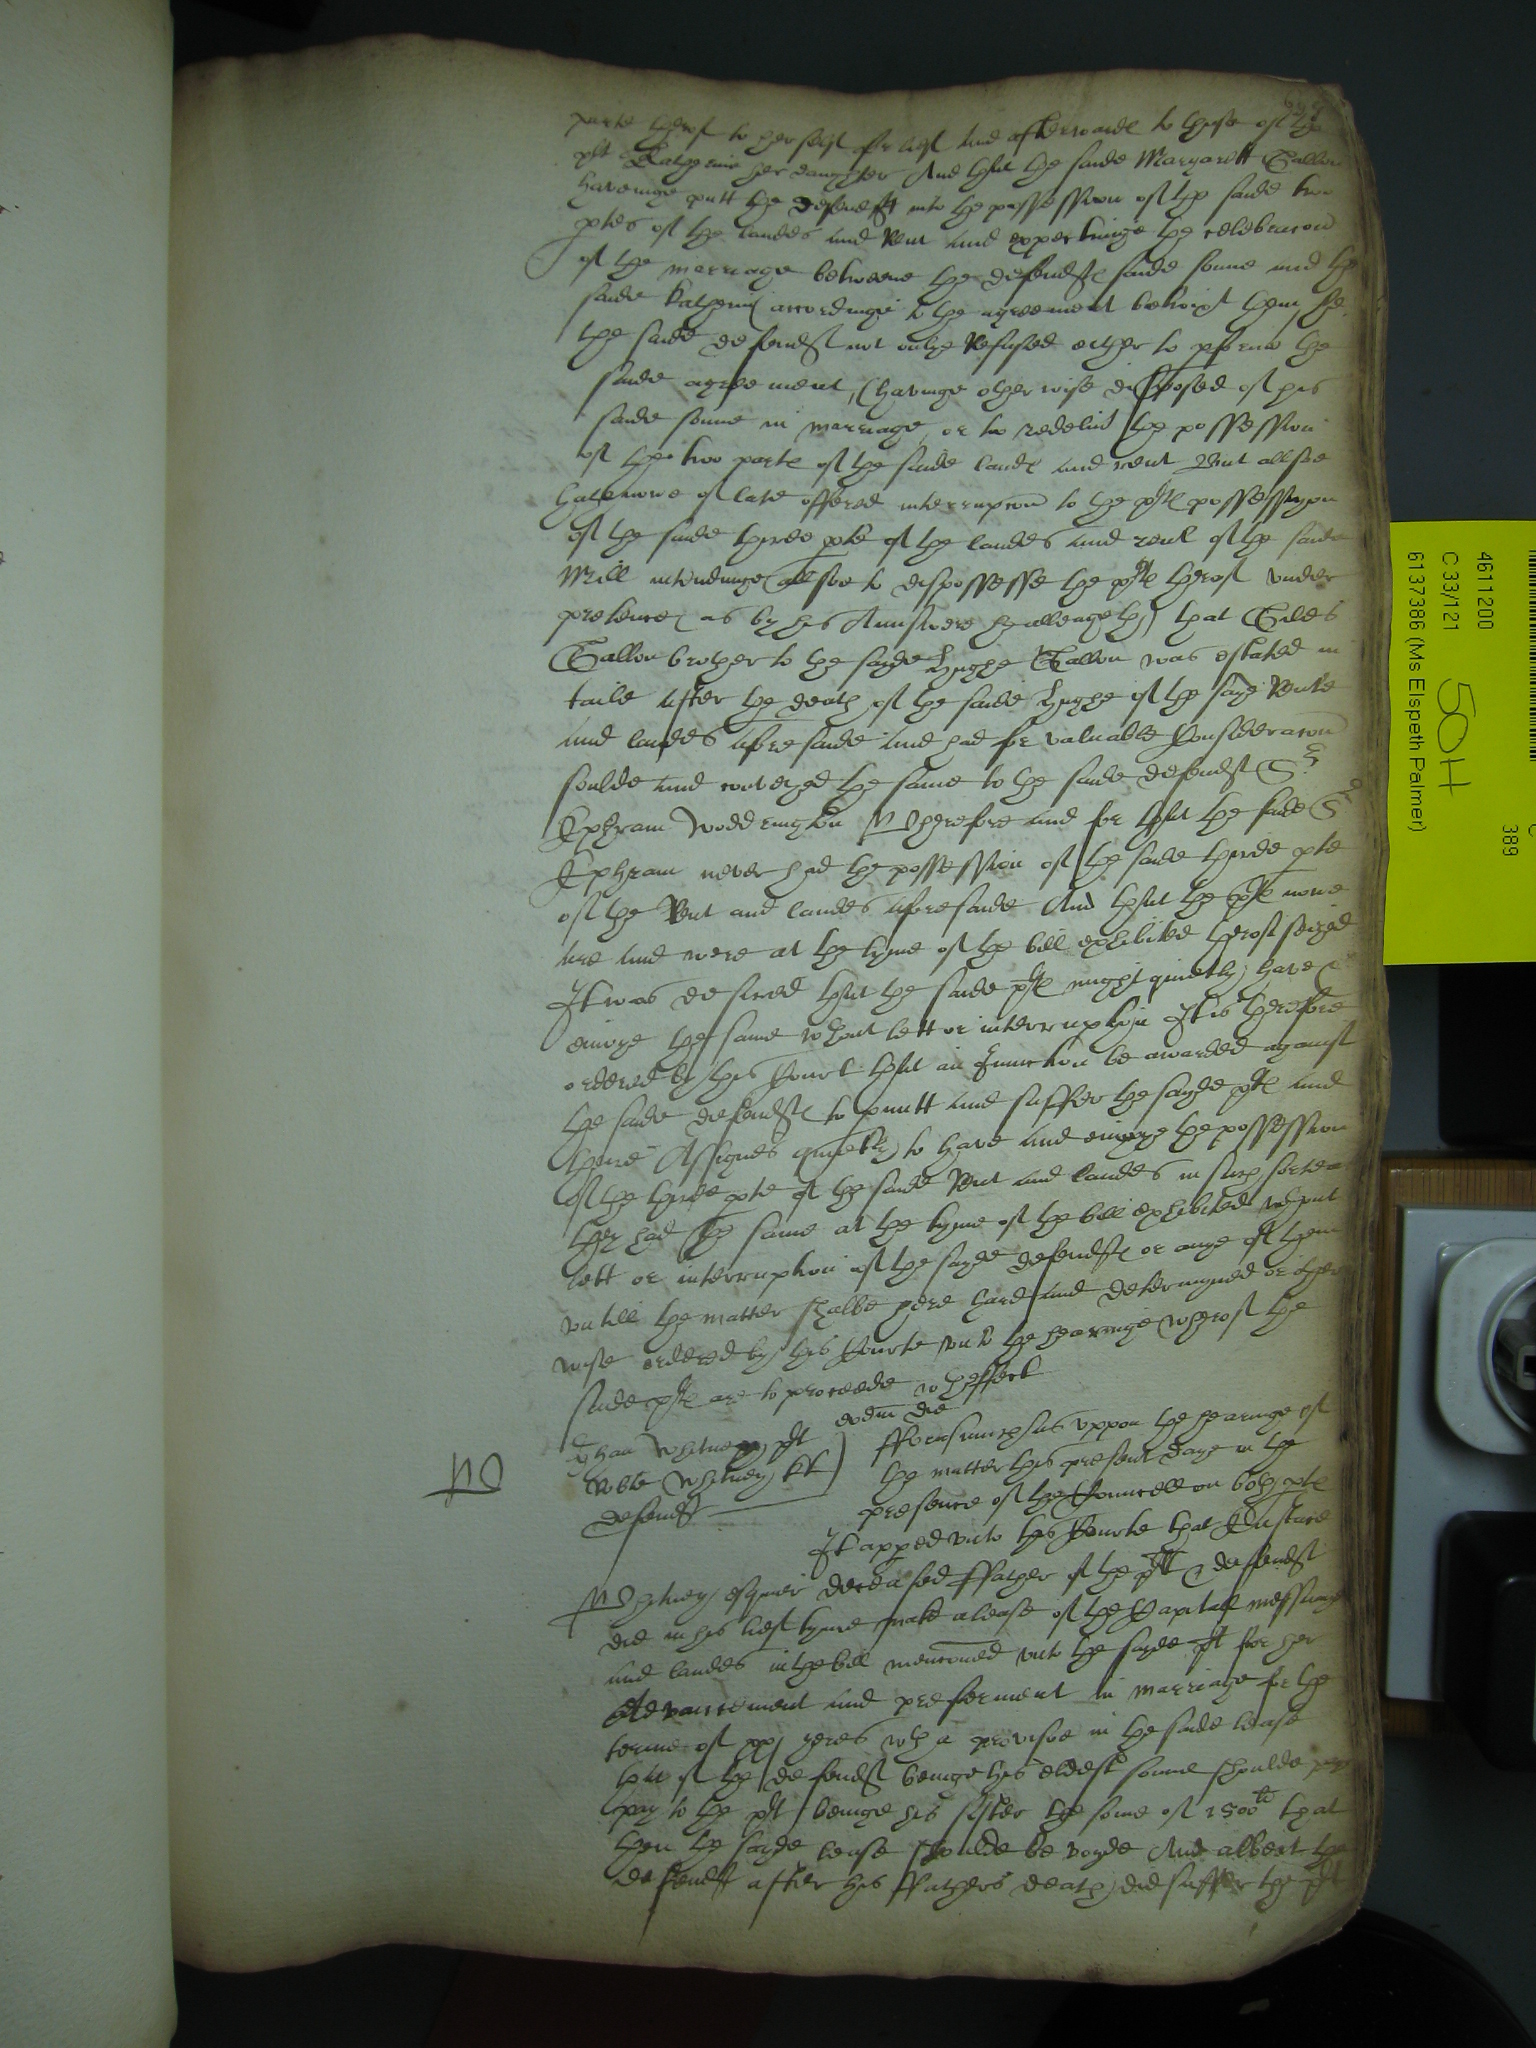 parte therof to her self for lief and afterwarde to thuse of the
plt Katherine her daughter And that the saide Margarett Gallon
haveinge putt the defendt into the possession of the saide two
ptes of the landes and Rent and expectinge the celebracon
of the marriage betweene the defendte saide sonne and the
saide Katherin accordinge to the agreement betwixt them, he
the saide defendt not onlye Refused either to pforme the
saide agreement, (havinge otherwise disposed of his
saide sonne in marriage, or to redeliv the possession
of the two parte of the saide lande and rent But allsoe
hathe nowe of late offered interrupcon to the plte possessyon
of the saide thirde pte of the landes and rent of the saide
Mill intendinge allsoe to dispossesse the plte therof under
pretence, as by his Aunswere he alleageth, that Gilles
Gallon brother to the sayde Hughe Gallon was estated in
taile after the death of the saide Hughe of the said Rente
and landes aforesaide and had for valuable Consideracon
soulde and conveyed the same to the saide defendt Sr
Ephram Woddrington Wherefore and for that the saide Sr
Ephram never had the possession of the saide thirde pte
of the Rent and landes aforesaide And that the plte nowe
are and were at the tyme of the bill exhibited therof seized
It was desired that the saide plte might quietly have &
enioye the same wthout lett or interruption It is therefore
ordered by this Court that an Iniunction be awarded against
the saide defendte to pmitt and suffer the sayde plte and
theire Assignes quietly to have and enioye the possession
of the thirde pte of the saide Rent and landes in such sorte as
they had the same at the tyme of the bill exhibited wthout
lett or interruption of the sayde defendte or anye of them
untill the matter shalbe here hard and determyned or other
wise ordered by this Courte unto the hearinge wherof the
saide plte are to proceede wth effect
eodm die
Whitney plt
Robte Whitney kt
defendt
fforasmuch as uppon the hearinge of
the matter this present daye in the
presence of the Councell on both pte
It apped unto this Courte that Eustace
Whitney esquier deceased ffather of the plt & defendt
did in his lief tyme make a lease of the Capitall messuage
and landes in the bill mencioned unto the sayde plt for her
advancement and preferment in marriage for the
terme of xxj yeres wth a provisoe in the saide lease
that if the defendt beinge his eldest sonne shoulde
pay to the plt beinge his sister the some of 1500li that
then the sayde lease shoulde be voyde And albeit the
defendt after his ffathers death did suffer the plt
4611200
C 33/121
6137386 (Ms Elspeth Palmer)
50H
389